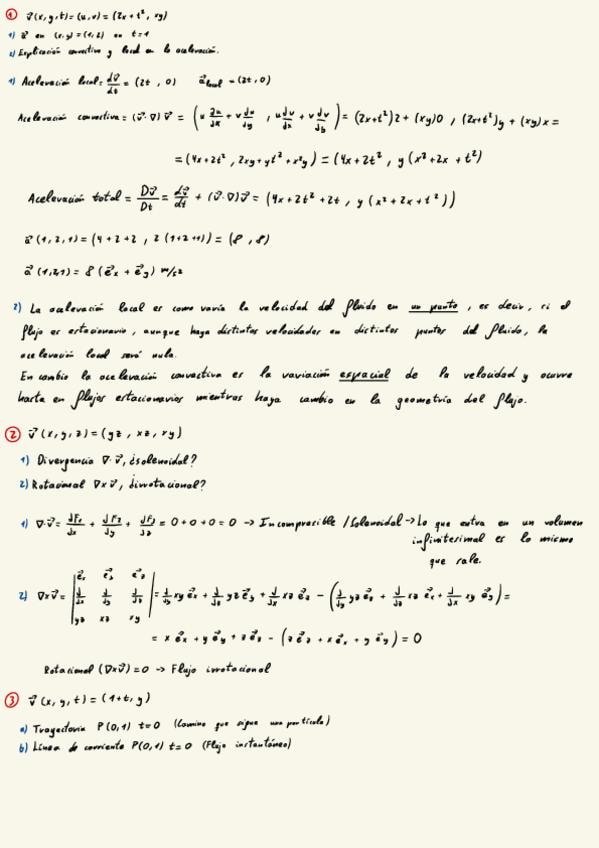 ① v⃗(x,y,t)=(u,v)=(2x+t², xy)
1) a⃗ en (x,y)=(1,2) en t=1
2) Explicación convectiva y local en la aceleración.
1) Aceleración local= dv⃗/dt = (2t, 0) a⃗local = (2t,0)
Aceleración convectiva = (v⃗·∇)v⃗ = (u du/dx + v du/dy , u dv/dx + v dv/dy) = (2x+t²)2 + (xy)0 , (2x+t²)y + (xy)x =
= (4x+2t², 2xy+yt²+x²y) = (4x+2t², y(x²+2x+t²)
Aceleración total = Dv⃗/Dt = dv⃗/dt + (v⃗·∇)v⃗ = (4x+2t²+2t, y(x²+2x+t²))
a⃗(1,2,1)=(4+2+2, 2(1+2+1)) = (8,8)
a⃗(1,2,1)= 8(e⃗x + e⃗y) m/s²
2) La aceleración local es como varía la velocidad del fluido en un punto, es decir, si el
flujo es estacionario, aunque haya distintas velocidades en distintos puntos del fluido, la
aceleración local será nula.
En cambio la aceleración convectiva es la variación espacial de la velocidad y ocurre
hasta en flujos estacionarios mientras haya cambio en la geometría del flujo.
② v⃗(x,y,z)=(yz, xz, xy)
1) Divergencia ∇·v⃗, ¿solenoidal?
2) Rotacional ∇×v⃗, ¿irrotacional?
1) ∇·v⃗ = dF₁/dx + dF₂/dy + dF₃/dz = 0+0+0=0 → Incompresible / Solenoidal → Lo que entra en un volumen
infinitesimal es lo mismo
que sale.
2) ∇×v⃗ = |e⃗x e⃗y e⃗z; d/dx d/dy d/dz; yz xz xy| = d/dy xy e⃗x + d/dz yz e⃗y + d/dx xz e⃗z − (d/dy yz e⃗z + d/dz xz e⃗x + d/dx xy e⃗y) =
= x e⃗x + y e⃗y + z e⃗z − (z e⃗z + x e⃗x + y e⃗y) = 0
Rotacional (∇×v⃗)=0 → Flujo irrotacional
③ v⃗(x,y,t)=(1+t, y)
a) Trayectoria P(0,1) t=0 (Camino que sigue una partícula)
b) Línea de corriente P(0,1) t=0 (Flujo instantáneo)